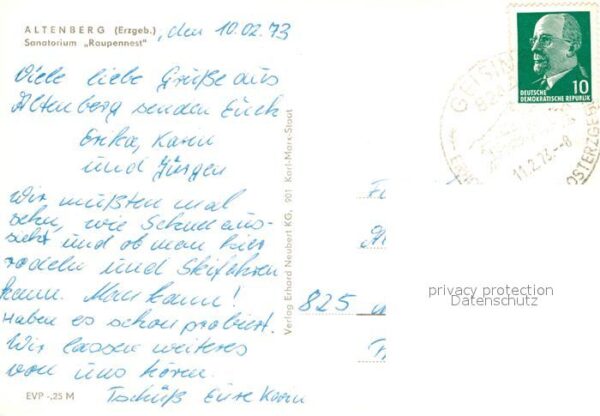 ALTENBERG (Erzgeb.)
Sanatorium „Raupennest"
, den 10.02.73
Viele liebe Grüße aus
Altenberg senden Euch
Erika, Karin
und Jürgen
Wir mußten mal
sehn, wie Schnee aus-
sieht und ob man hier
rodeln und Skifahren
kann. Man kann!
Haben es schon probiert.
Wir lassen weiteres
von uns hören.
Tschüß Eure Karin
EVP -,25 M
Verlag Erhard Neubert KG, 901 Karl-Marx-Stadt
10
DEUTSCHE
DEMOKRATISCHE REPUBLIK
11.2.73.--8
OSTERZGEB
825
privacy protection
Datenschutz